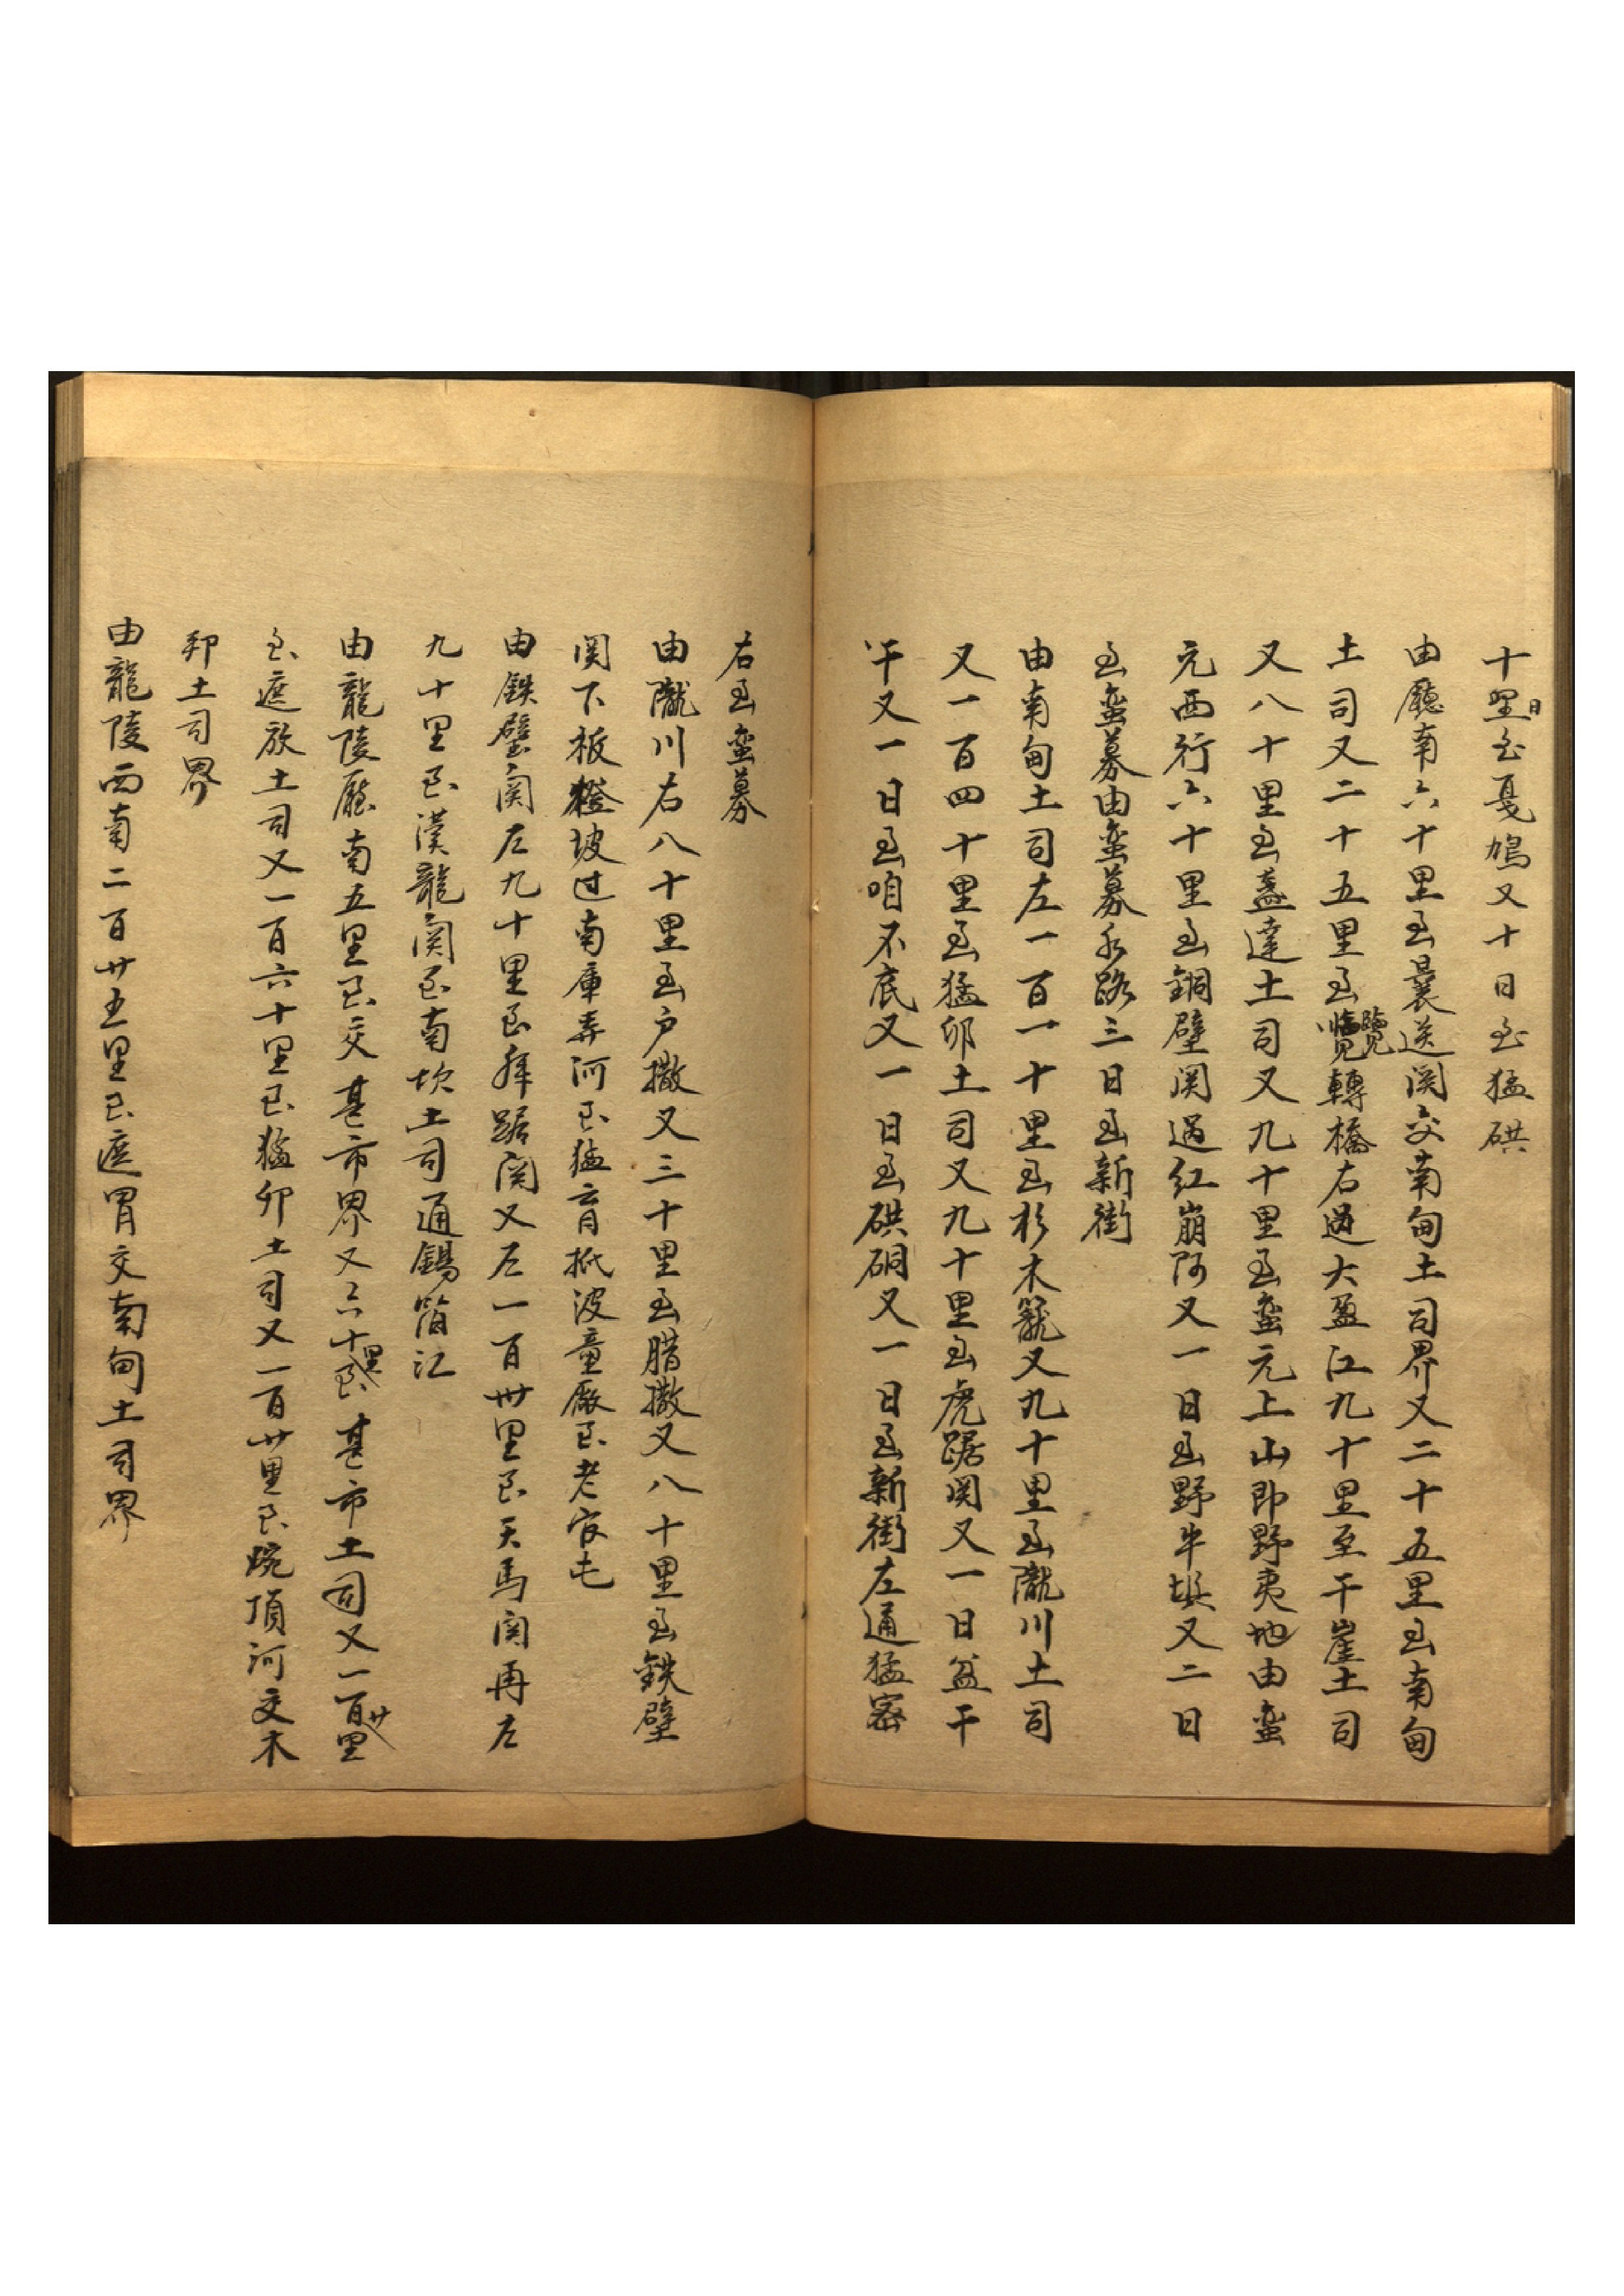 十里日至戛鳩又十日至猛硔
由廳南六十里至曩送関交南甸土司界又二十五里至南甸
土司又二十五里至轉橋右過大盈江九十里至干崖土司
又八十里至盞達土司又九十里至蛮元上山即野夷地由蛮
元西行六十里至銅壁関過紅崩陏又一日至野牛垻又二日
至蛮募由蛮募水路三日至新街
由南甸土司左一百一十里至杉木籠又九十里至隴川土司
又一百四十里至猛卯土司又九十里至虎踞関又一日盆干
又一日至咱不底又一日至硔硐又一日至新街左通猛密
右至蛮募
由隴川右八十里至户撒又三十里至腊撒又八十里至鉄壁
関下板櫈坡过南庫弄河至猛育抵波童厰至老官屯
由鉄壁関左九十里至乕踞関又左一百卅里至天馬関再左
九十里至漢龍関至南坎土司通錫箔江
由龍陵廳南五里至交甚市界又六十里至甚市土司又一百廿里
至遮放土司又一百六十里至猛卯土司又一百廿里至畹頂河交木
邦土司界
由龍陵西南二百廿五里至遮冒交南甸土司界